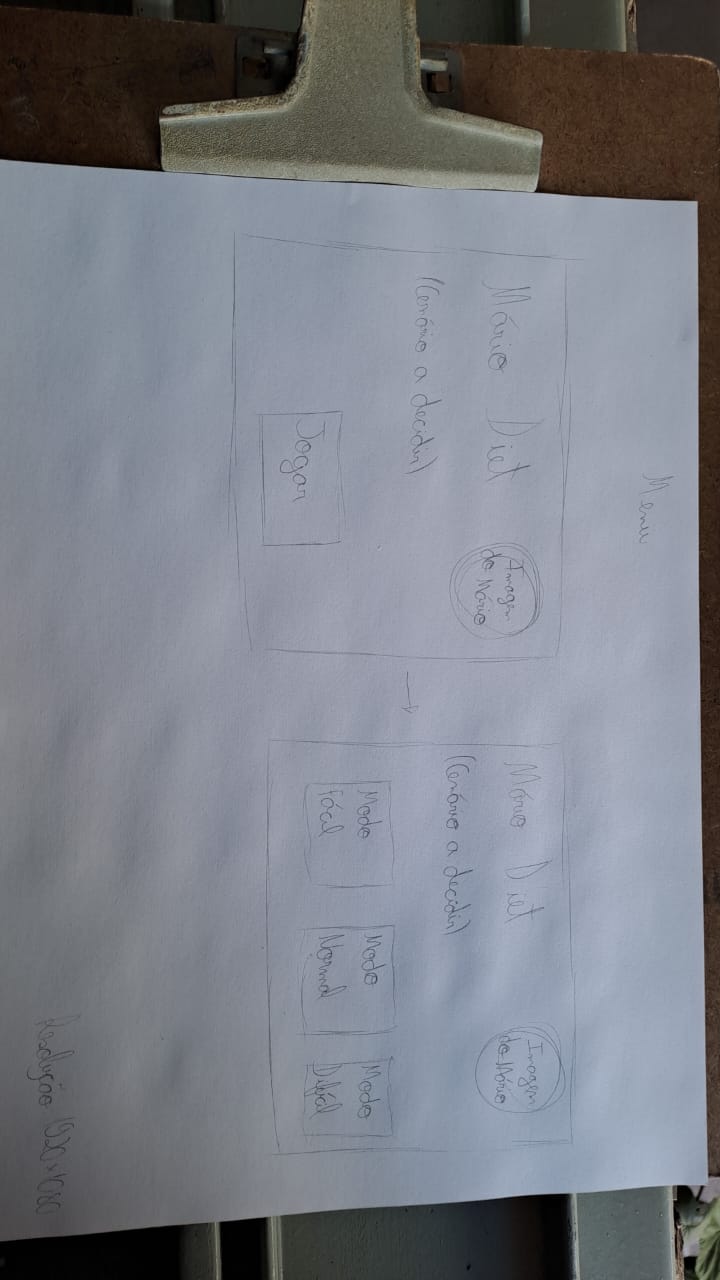 Menu
Mário Diet
Imagem
do Mário
(Cenário a decidir)
Jogar
Mário Diet
Imagem
do Mário
(Cenário a decidir)
Modo
Fácil
Modo
Normal
Modo
Difícil
Resolução 1920x1080